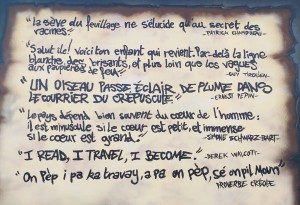 "la sève du feuillage ne s'élucide qu'au secret des
racines."
- PATRICK CHAMOISEAU -
"Salut île! Voici ton enfant qui revient. Par-delà la ligne
blanche des brisants, et plus loin que les vagues
aux paupières de feu."
- GUY TIROLIEN -
"UN OISEAU PASSE ÉCLAIR DE PLUME DANS
LE COURRIER DU CRÉPUSCULE."
- ERNEST PÉPIN -
"Le pays dépend bien souvent du cœur de l'homme:
il est minuscule si le cœur est petit, et immense
si le cœur est grand."
- SIMONE SCHWARZ-BART -
"I READ, I TRAVEL, I BECOME."
- DEREK WALCOTT -
"On pép i pa ka travay, a pa on pép, sé on pil Moun"
PROVERBE CRÉOLE